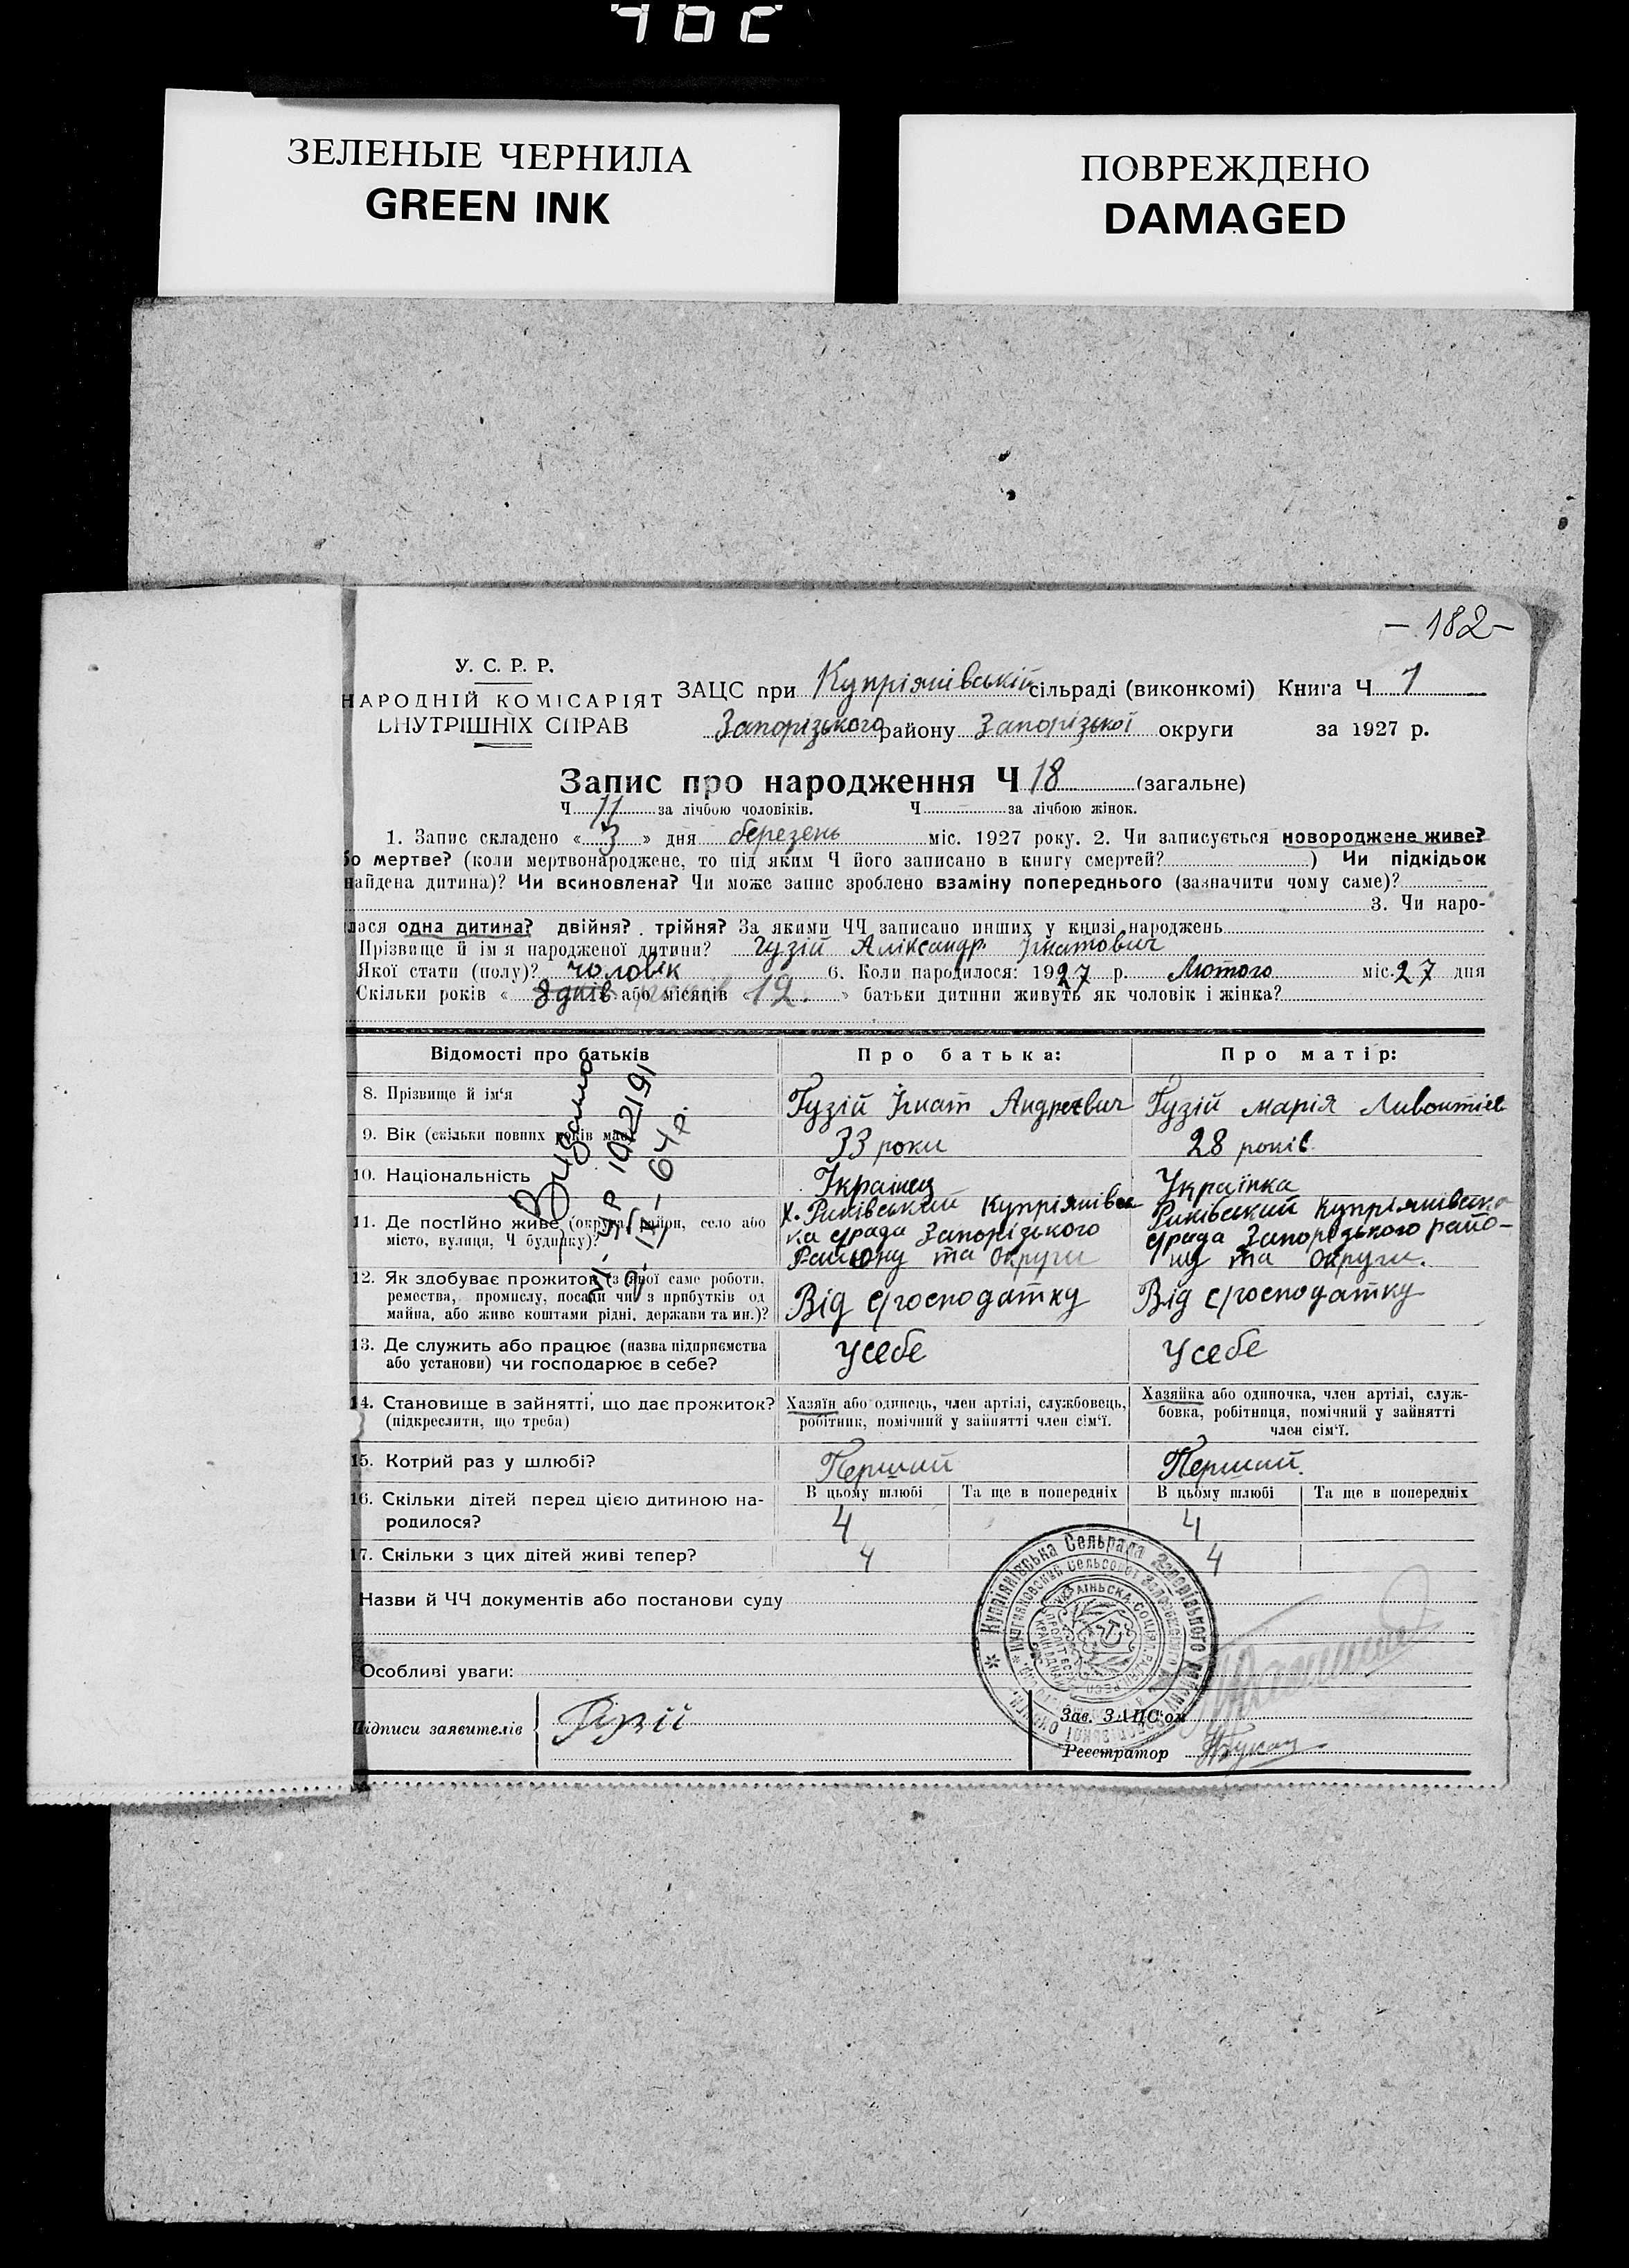 ЗЕЛЕНЫЕ ЧЕРНИЛА
GREEN INK
ПОВРЕЖДЕНО
DAMAGED
– 182 –
У. С. Р. Р.
НАРОДНІЙ КОМІСАРІЯТ
ВНУТРІШНІХ СПРАВ
ЗАЦС при Купріянівській сільраді (виконкомі) Книга Ч 1
Запорізького району Запорізької округи за 1927 р.
Запис про народження Ч 18 (загальне)
Ч 11 за лічбою чоловіків. Ч за лічбою жінок.
1. Запис складено « 3 » дня березень міс. 1927 року. 2. Чи записується новороджене живе?
бо мертве? (коли мертвонароджене, то під яким Ч його записано в книгу смертей? ) Чи підкідьок
найдена дитина)? Чи всиновлена? Чи може запис зроблено взаміну попереднього (зазначити чому саме)?
3. Чи наро-
лося одна дитина? двійня? трійня? За якими ЧЧ записано инших у книзі народжень
Прізвище й ім я народженої дитини? Гузій Аліксандр Ігнатович
Якої стати (полу)? чоловік 6. Коли народилося: 1927 р. Лютого міс. 27 дня
Скільки років « 8 днів або місяців « 12. » батьки дитини живуть як чоловік і жінка?
Відомості про батьків
Про батька:
Про матір:
8. Прізвище й ім'я
Гузій Ігнат Андреєвич
Гузій Марія Ливонтієв
9. Вік (скільки повних років має)
33 роки
28 років
10. Національність
Українец
Українка
11. Де постійно живе (округа, район, село або
місто, вулиця, Ч будинку)?
х. Риківський Купріянівсь
ка с/рада Запорізького
Району та Округи
Риківский Купріянівська
с/рада Запорізького райо-
ну та Округи.
12. Як здобуває прожиток (з якої саме роботи,
ремества, промислу, посади чи з прибутків од
майна, або живе коштами рідні, держави та ин.)?
Від с/господатку
Від с/господатку
13. Де служить або працює (назва підприємства
або установи) чи господарює в себе?
Усебе
Усебе
14. Становище в зайнятті, що дає прожиток?
(підкреслити, що треба)
Хазяїн або одинець, член артілі, службовець,
робітник, помічний у зайнятті член сім'ї.
Хазяйка або одиночка, член артілі, служ-
бовка, робітниця, помічний у зайнятті
член сім'ї.
15. Котрий раз у шлюбі?
Перший
Перший.
16. Скільки дітей перед цією дитиною на-
родилося?
В цьому шлюбі
Та ще в попередніх
В цьому шлюбі
Та ще в попередніх
4
4
17. Скільки з цих дітей живі тепер?
4
4
Видано
Назви й ЧЧ документів або постанови суду
Особливі уваги:
Підписи заявителів
Гузій
Зав. ЗАЦС'ом
Реєстратор
Купріянівська Сельрада Запорізького району